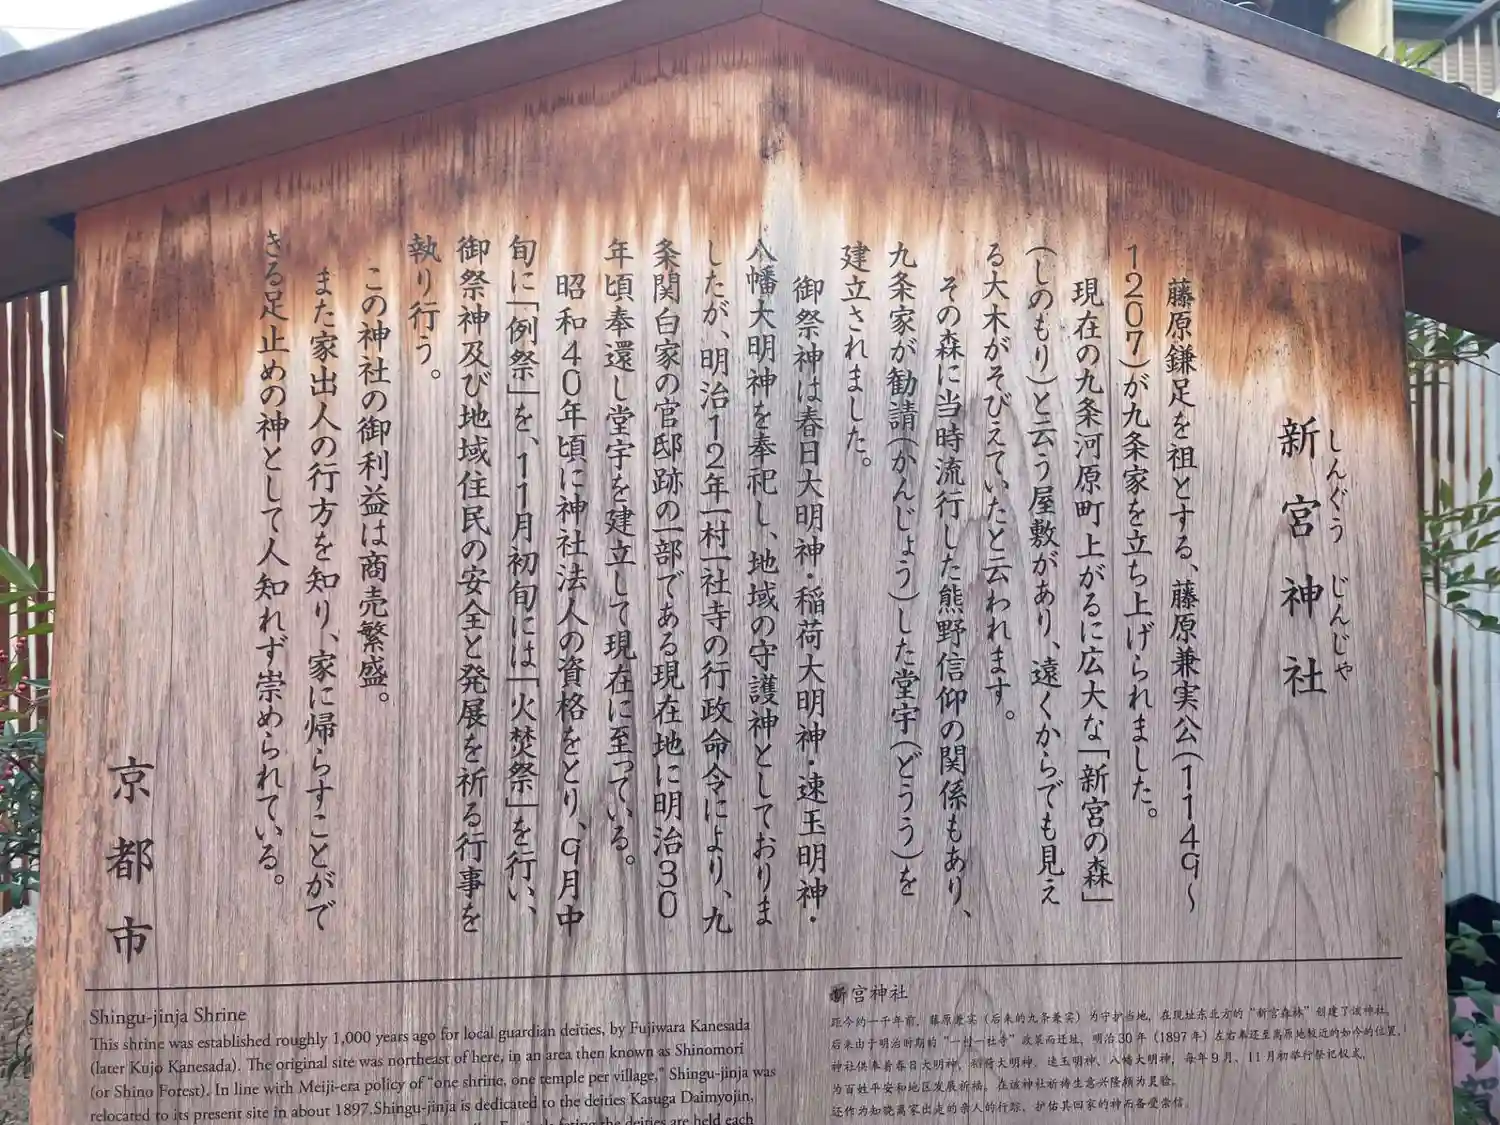 新宮神社
しんぐう じんじゃ
藤原鎌足を祖とする、藤原兼実公(1149〜
1207)が九条家を立ち上げられました。
現在の九条河原町上がるに広大な「新宮の森」
(しのもり)と云う屋敷があり、遠くからでも見え
る大木がそびえていたと云われます。
その森に当時流行した熊野信仰の関係もあり、
九条家が勧請(かんじょう)した堂宇(どうう)を
建立されました。
御祭神は春日大明神・稲荷大明神・速玉明神・
八幡大明神を奉祀し、地域の守護神としておりま
したが、明治12年一村一社寺の行政命令により、九
条関白家の官邸跡の一部である現在地に明治30
年頃奉還し堂宇を建立して現在に至っている。
昭和40年頃に神社法人の資格をとり、9月中
旬に「例祭」を、11月初旬には「火焚祭」を行い、
御祭神及び地域住民の安全と発展を祈る行事を
執り行う。
この神社の御利益は商売繁盛。
また家出人の行方を知り、家に帰らすことがで
きる足止めの神として人知れず崇められている。
京都市
Shingu-jinja Shrine
This shrine was established roughly 1,000 years ago for local guardian deities, by Fujiwara Kanesada
(later Kujo Kanesada). The original site was northeast of here, in an area then known as Shinomori
(or Shino Forest). In line with Meiji-era policy of "one shrine, one temple per village," Shingu-jinja was
relocated to its present site in about 1897.Shingu-jinja is dedicated to the deities Kasuga Daimyojin,
the deities are held each
新宮神社
距今约一千年前，藤原兼实（后来的九条兼实）为守护当地，在现址东北方的"新宫森林"创建了该神社。
后来由于明治时期的"一村一社寺"政策而迁址，明治30年（1897年）左右奉还至离原地较近的如今的位置。
神社供奉着春日大明神，稻荷大明神，速玉明神，八幡大明神，每年9月、11月初举行祭祀仪式，
为百姓平安和地区发展祈福。在该神社祈祷生意兴隆颇为灵验。
还作为知晓离家出走的亲人的行踪，护佑其回家的神而备受崇信。